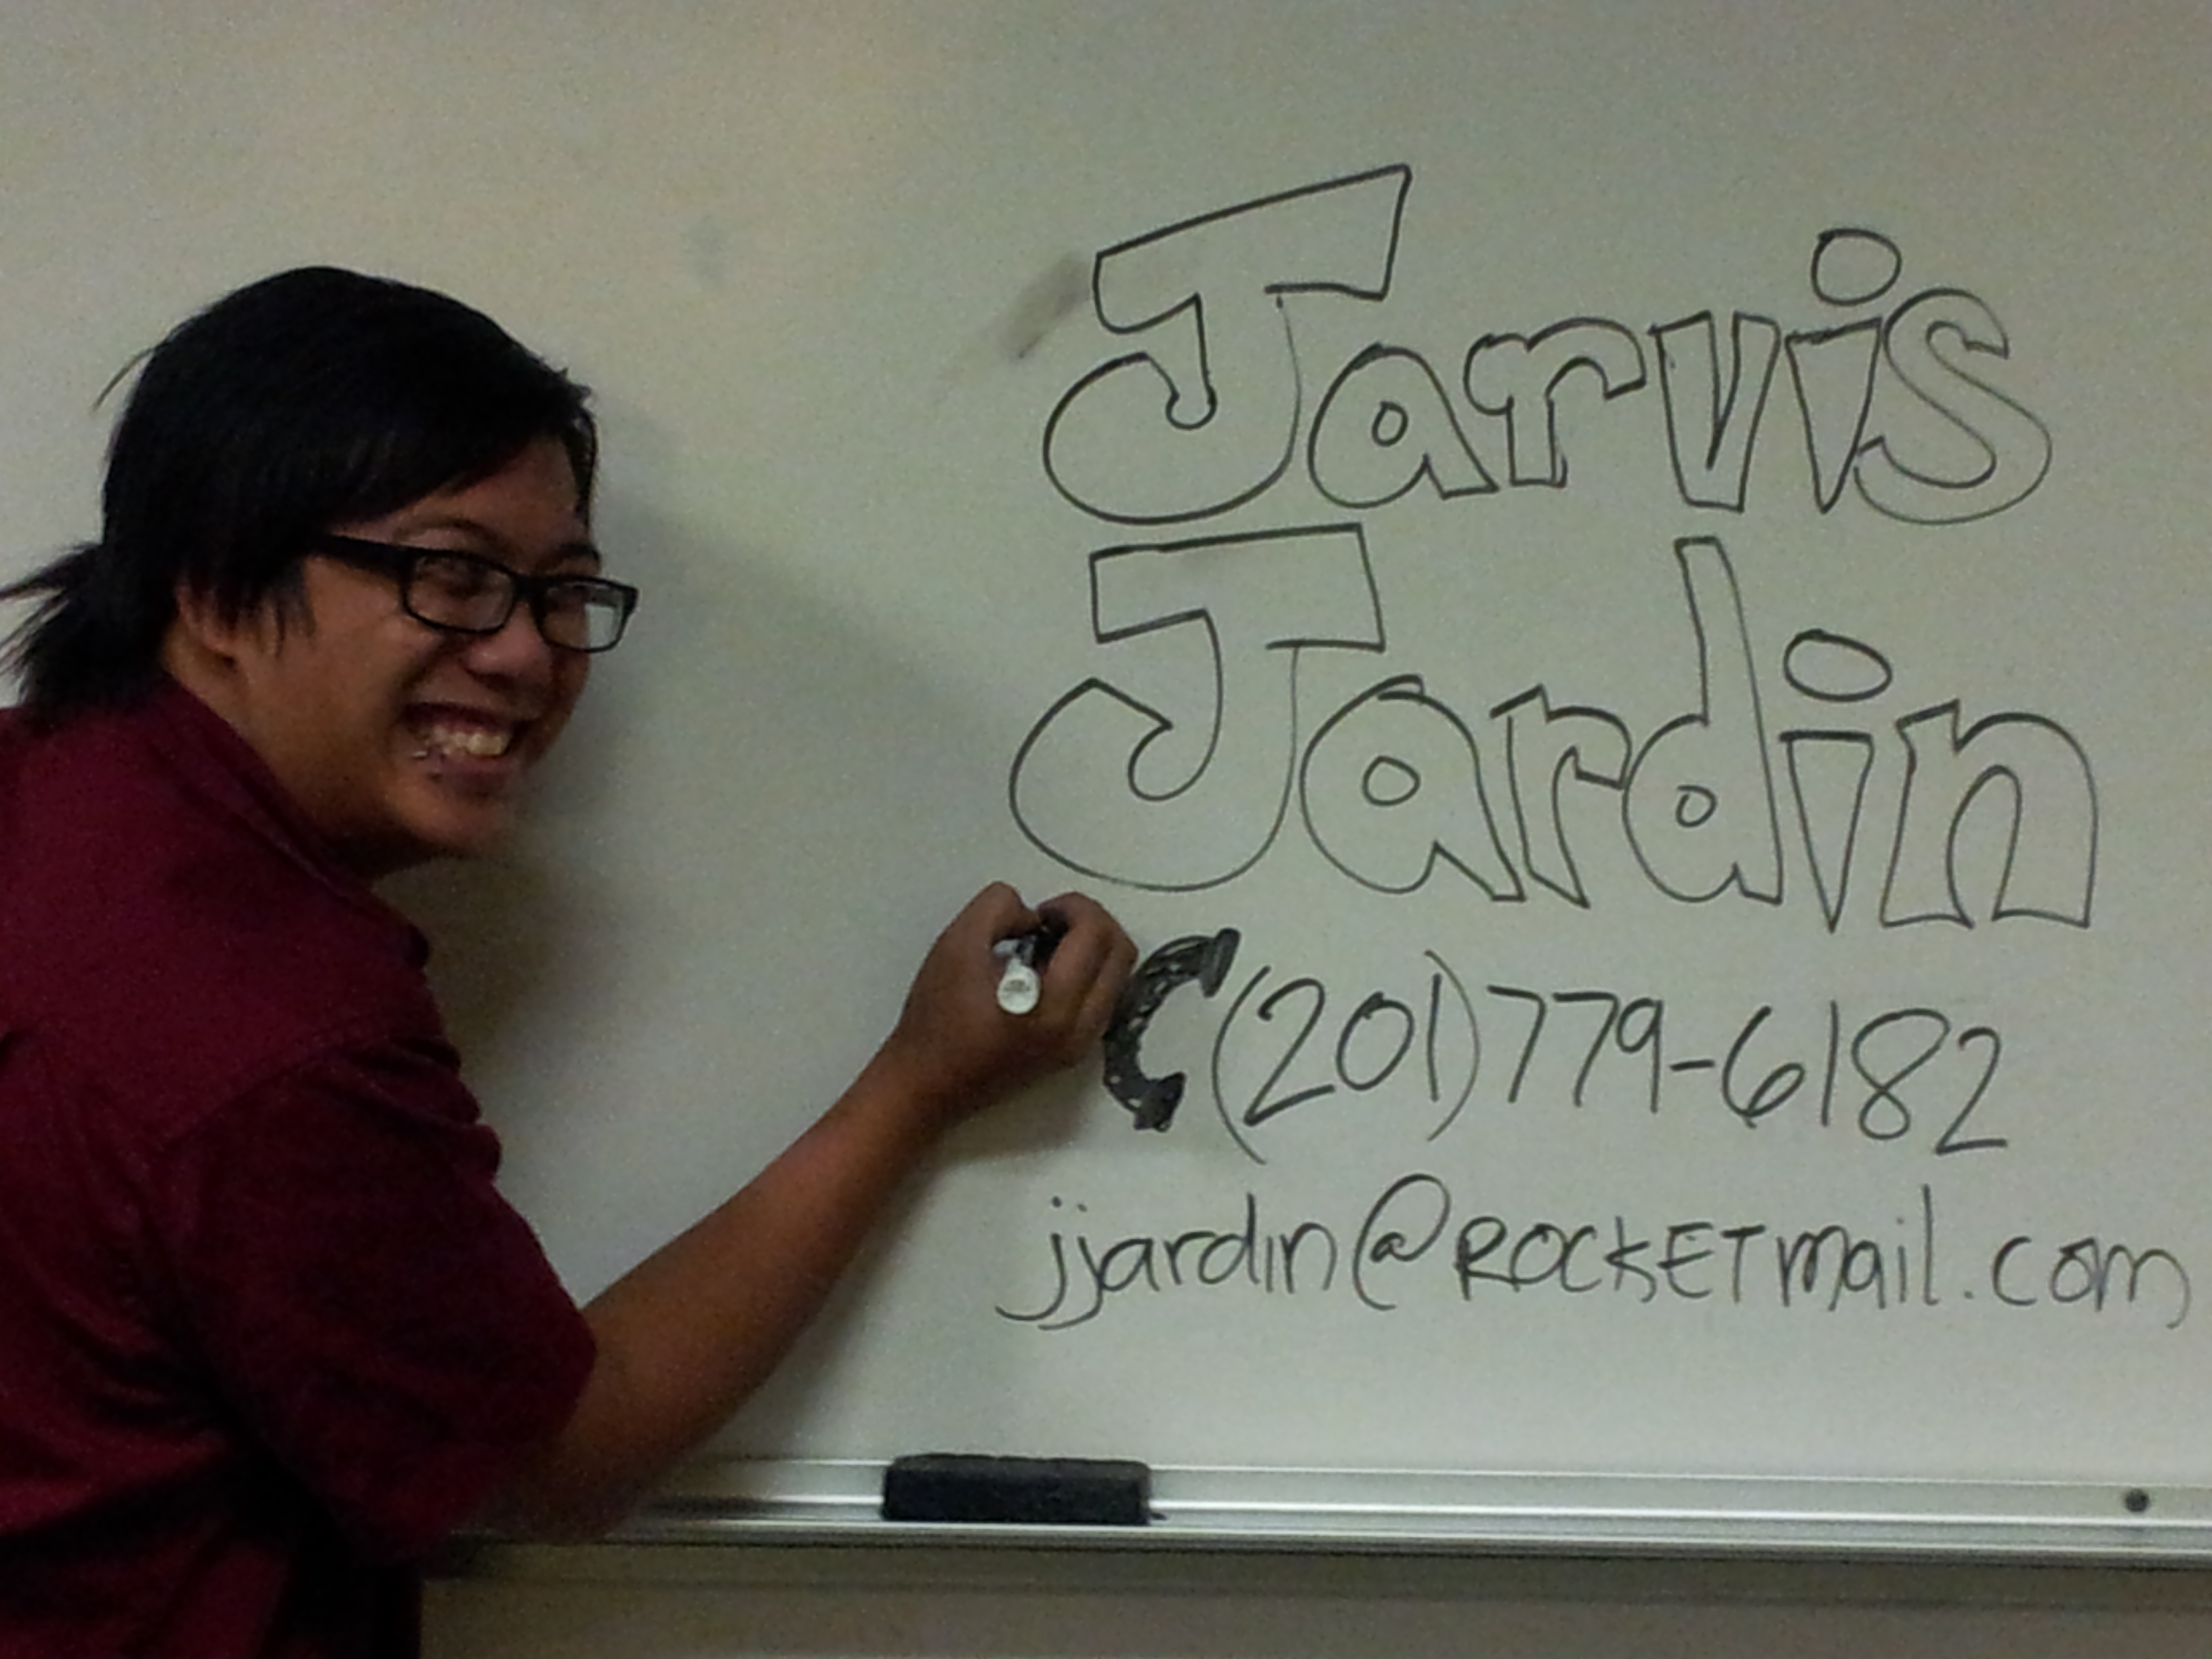 Jarvis
Jardin
(201)779-6182
jjardin@ROCKETmail.com